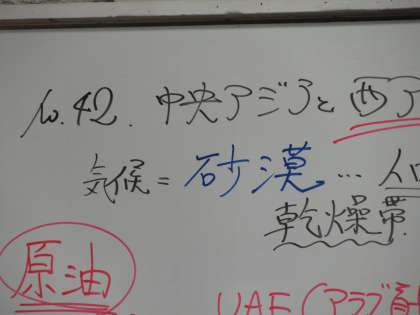 No.42. 中央アジアと西ア
気候=砂漠…人口
乾燥帯
原油
UAE(アラブ首